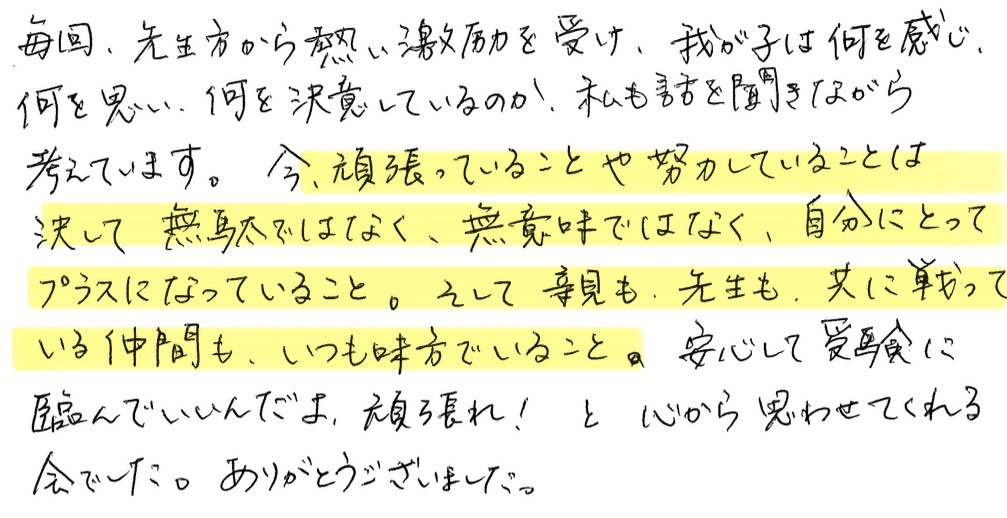 毎回、先生方から熱い激励を受け、我が子は何を感じ、
何を思い、何を決意しているのか、私も話を聞きながら
考えています。今、頑張っていることや努力していることは
決して無駄ではなく、無意味ではなく、自分にとって
プラスになっていること。そして親も、先生も、共に戦って
いる仲間も、いつも味方でいること。安心して受験に
臨んでいいんだよ、頑張れ！と心から思わせてくれる
会でした。ありがとうございました。